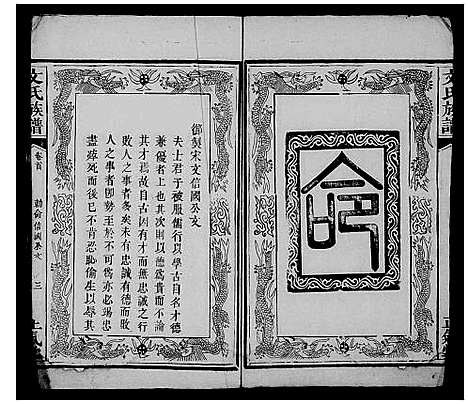 命
文氏族譜
御製宋文信國公文
夫士君子被服儒行以學古自名才德
兼優者上也其次則以德為貴而不論
其才焉故自古因有才而無忠誠之行
敗人之事者多矣未有忠誠有德而敗
人之事者即勢至於不可為亦必竭忠
盡殫死而後已不肯忍恥偷生以辱其
文氏族譜
卷首
三